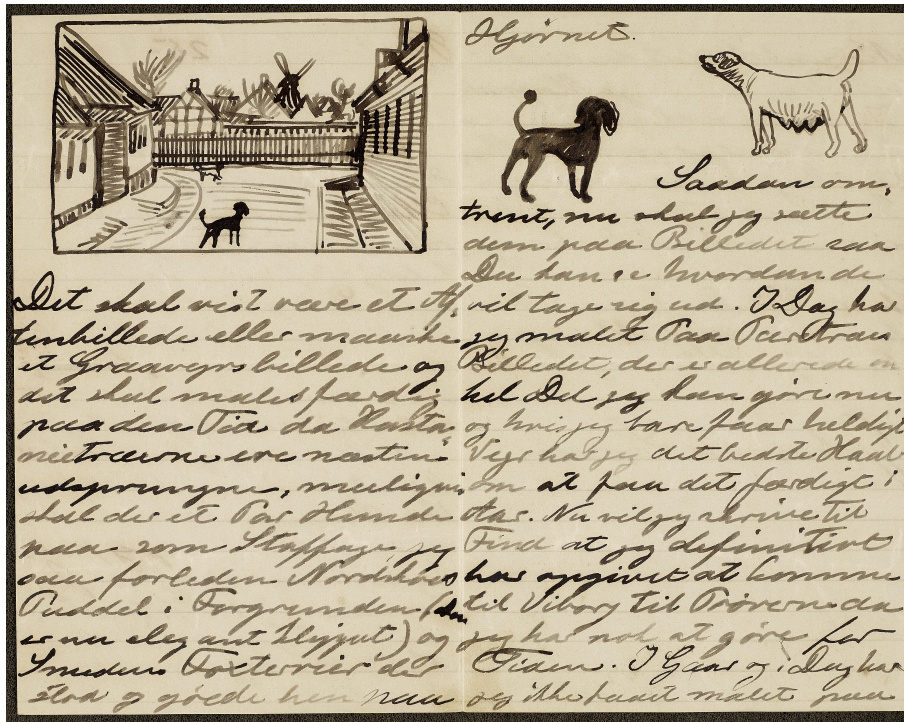 Det skal vist være et Af,
tenbillede eller maaske
et Graavejrsbillede og
det skal males færdig
paa den Tid da Kasta
nietræerne ere næsten
udsprungne, muligvis
skal der et Par Hunde
paa som Staffage, jeg
saa forleden Nordskovs
Puddel i Forgrunden (den
er nu elegant klippet) og
Smedens Foxterrier der
stod og gøede hen paa
Hjørnet.
Saadan om,
trent, nu skal jeg sætte
dem paa Billedet saa
Du kan se hvordan de
vil tage sig ud. I Dag har
jeg malet paa Pæretræs
Billedet, der er allerede en
hel Del jeg kan gøre nu
og hvis jeg bare faar heldigt
Vejr har jeg det bedste Haab
om at faa det færdigt i
Aar. Nu vil jeg skrive til
Find at jeg definitivt
har opgivet at komme
til Viborg til Prøverne da
jeg har nok at gøre for
Tiden. I Gaar og i Dag har
jeg ikke faaet malet paa